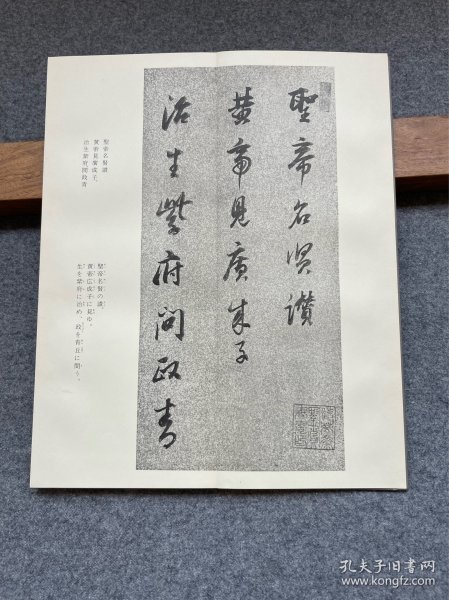 聖帝名賢讚
黄帝見廣成子
治生紫府問政青
聖帝名賢讚
黄帝見廣成子、
治生紫府問政青
聖帝名賢の讚。
黄帝広成子に見ゆ。
生を紫府に治め、政を青丘に問う。
孔夫子旧书网
www.kongfz.com